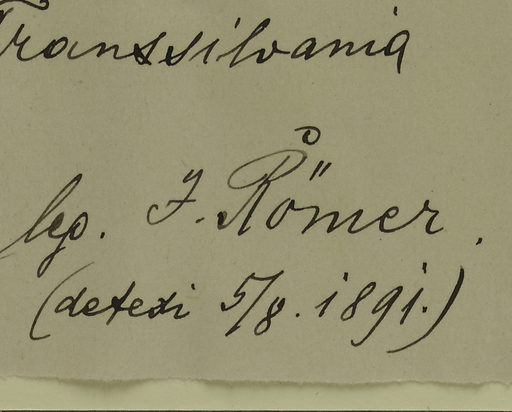 Transsilvania
leg. J. Römer.
(detexi 5/8. 1891.)